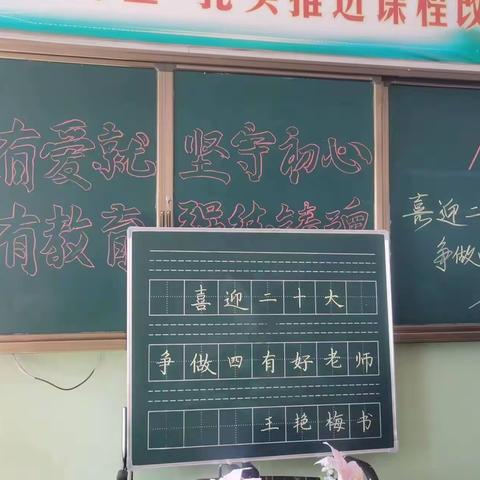 扎实推进课程改
有爱就 坚守初心
有教育
喜迎二
争做
喜迎二十大
争做四有好老师
王艳梅书